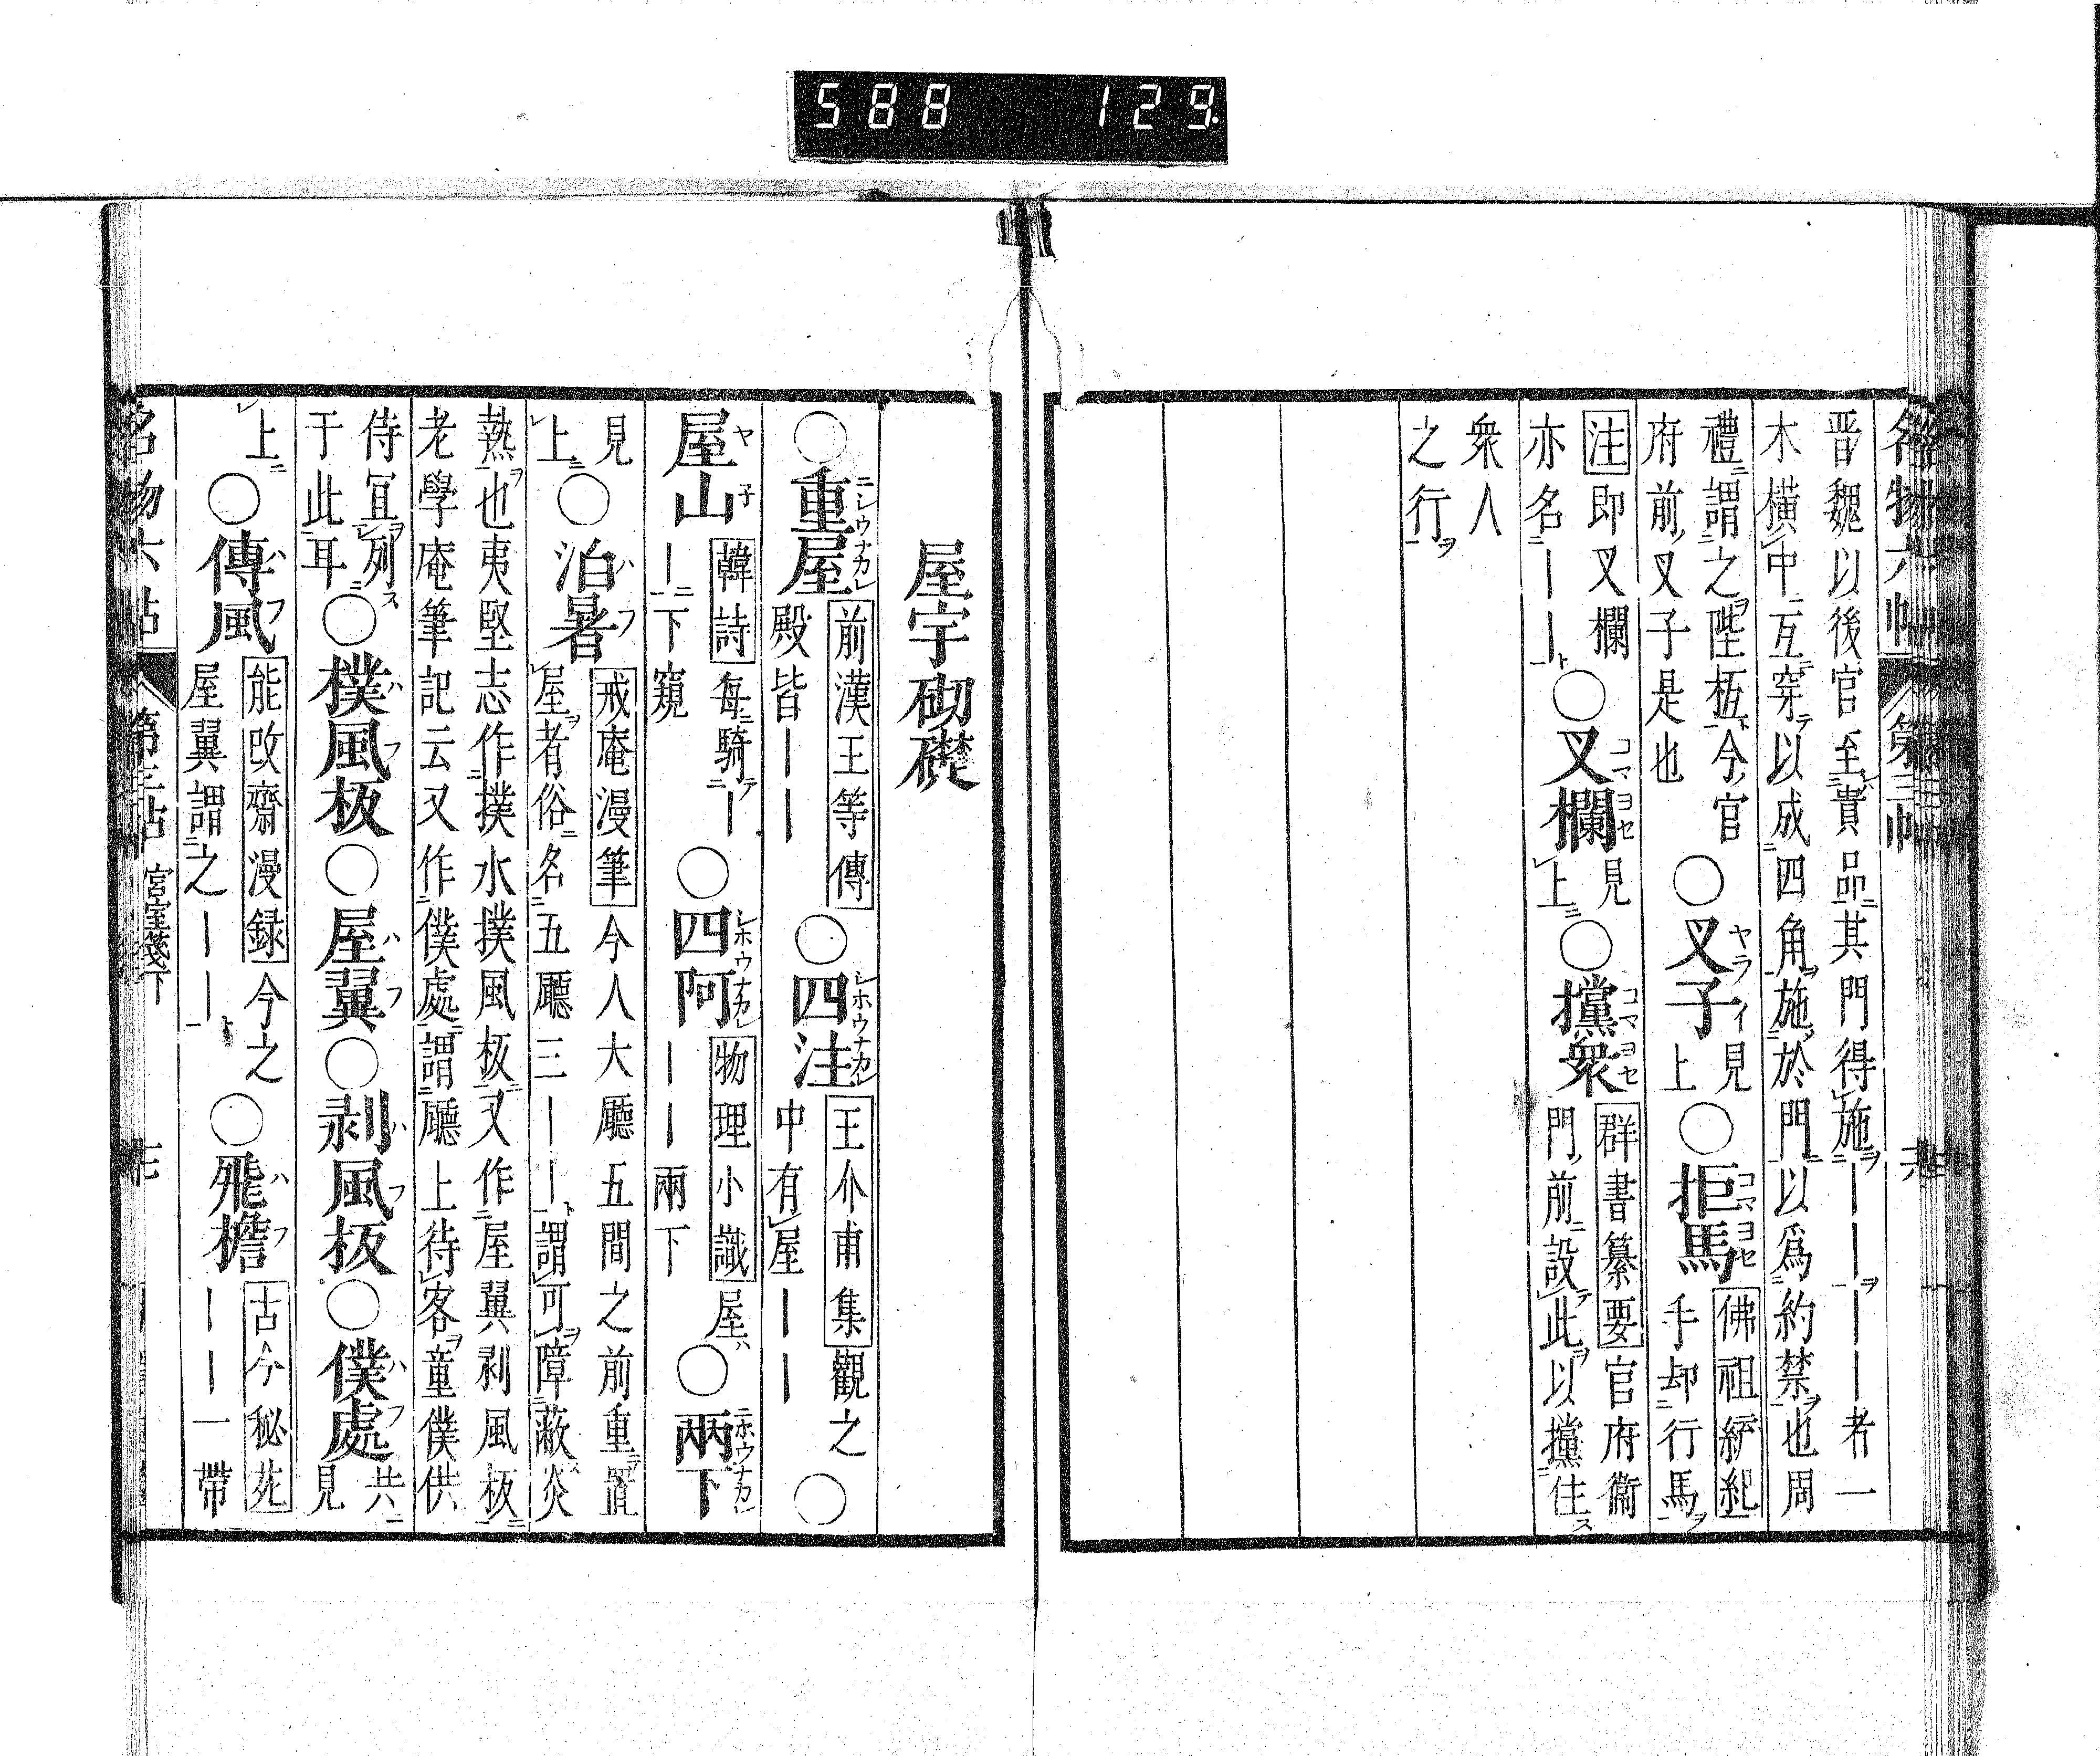 588 129
名物六帖 第三帖
晋魏以後官至貴品其門得施｜｜｜｜者一
木橫中互穿以成四角施於門以爲約禁也周
禮謂之陛枑今官
府前叉子是也
○叉子 見上 ○拒馬 佛祖統紀
手却行馬
注即叉欄
亦名｜｜
○叉欄 見上 ○攩衆 群書纂要官府衞
門前設此以攩住
衆人
之行
屋宇砌礎
○重屋 前漢王等傳
殿皆｜｜
○四注 王介甫集觀之
中有屋｜｜
○
屋山 韓詩每騎｜
｜下窺
○四阿 物理小識屋
｜｜兩下
○兩下
見
上
○泊暑 戒庵漫筆今人大廳五間之前重置
屋者俗名五廳三｜｜謂可障蔽炎
熱也夷堅志作撲水撲風板又作屋翼剥風板
老學庵筆記云又作僕處謂廳上待客童僕供
侍冝列
于此耳
○撲風板○屋翼○剥風板○僕處 共見
上
○傳風 能改齋漫録今之
屋翼謂之｜｜
○飛檐 古今秘苑
｜｜一帶
名物六帖 第三帖 宮室箋下